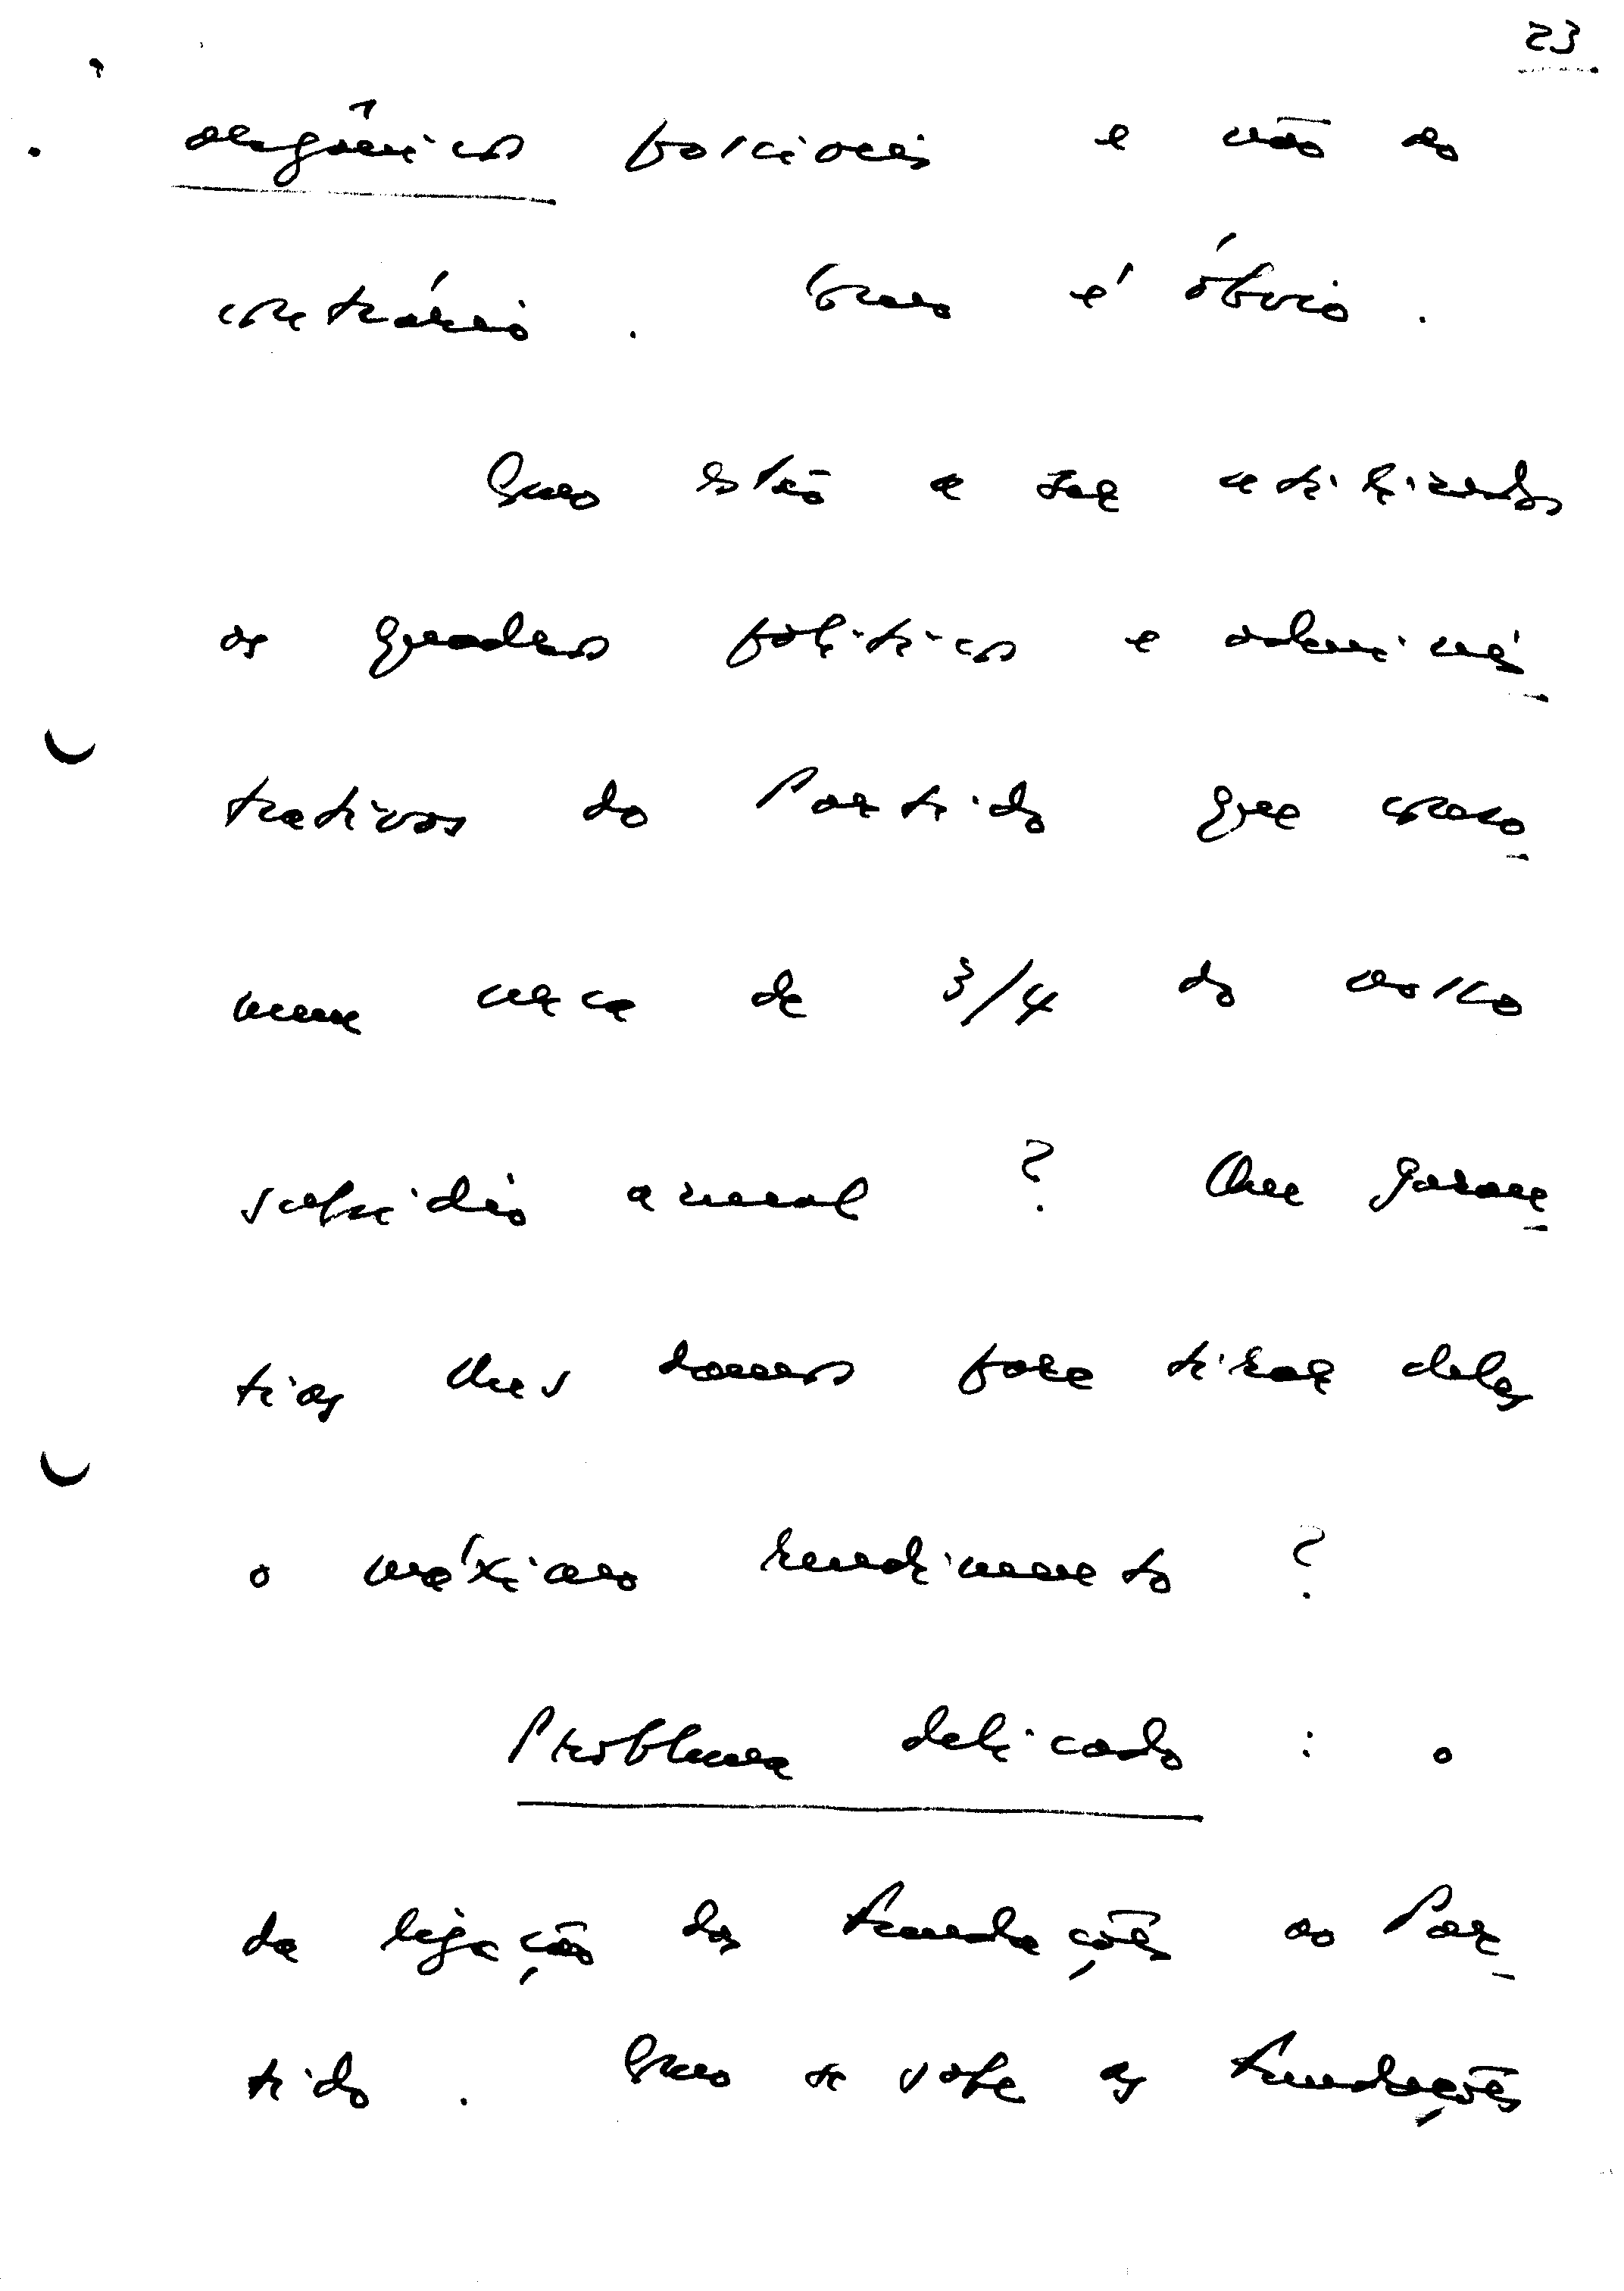 23
orgânicos parciais e não ao
contrário. Como é óbvio.
Como estão a ser utilizados
os quadros políticos e adminis-
trativos do Partido que conso-
mem cerca de 3/4 do nosso
subsídio anual? Que garan-
tias lhes damos para tirar deles
o máximo rendimento?
Problema delicado: o
da ligação das Fundações ao Par-
tido. Como se sabe as Fundações